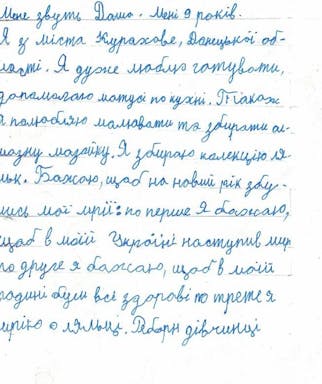 Мене звуть Даша. Мені 9 років.
Я з міста Курахове, Донецької об-
ласті. Я дуже люблю готувати,
допомагаю матусі по кухні. Також
я полюбляю малювати та збирати ал-
мазну мозаїку. Я збираю колекцію ля-
льк. Бажаю, щоб на новий рік збу-
лись мої мрії: по перше я бажаю,
щоб в моїй Україні наступив мир
по друге я бажаю, щоб в моїй
родині були всі здорові по третє я
мрію о ляльці. Реборн дівчинці